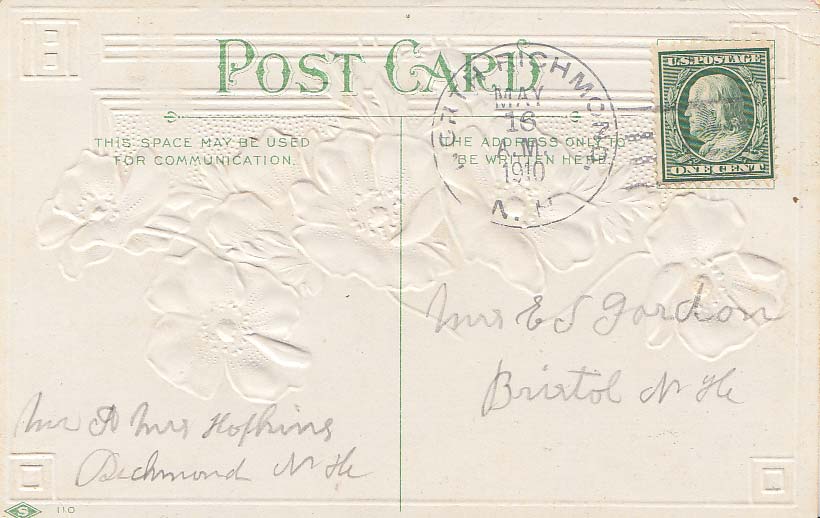 POST CARD
THIS SPACE MAY BE USED
FOR COMMUNICATION.
THE ADDRESS ONLY TO
BE WRITTEN HERE.
NORTH RICHMOND
MAY
16
A.M.
1910
N.H.
U.S. POSTAGE
ONE CENT
Mrs E S Gordon
Bristol N He
Mr & Mrs Hopkins
Richmond N He
S 110